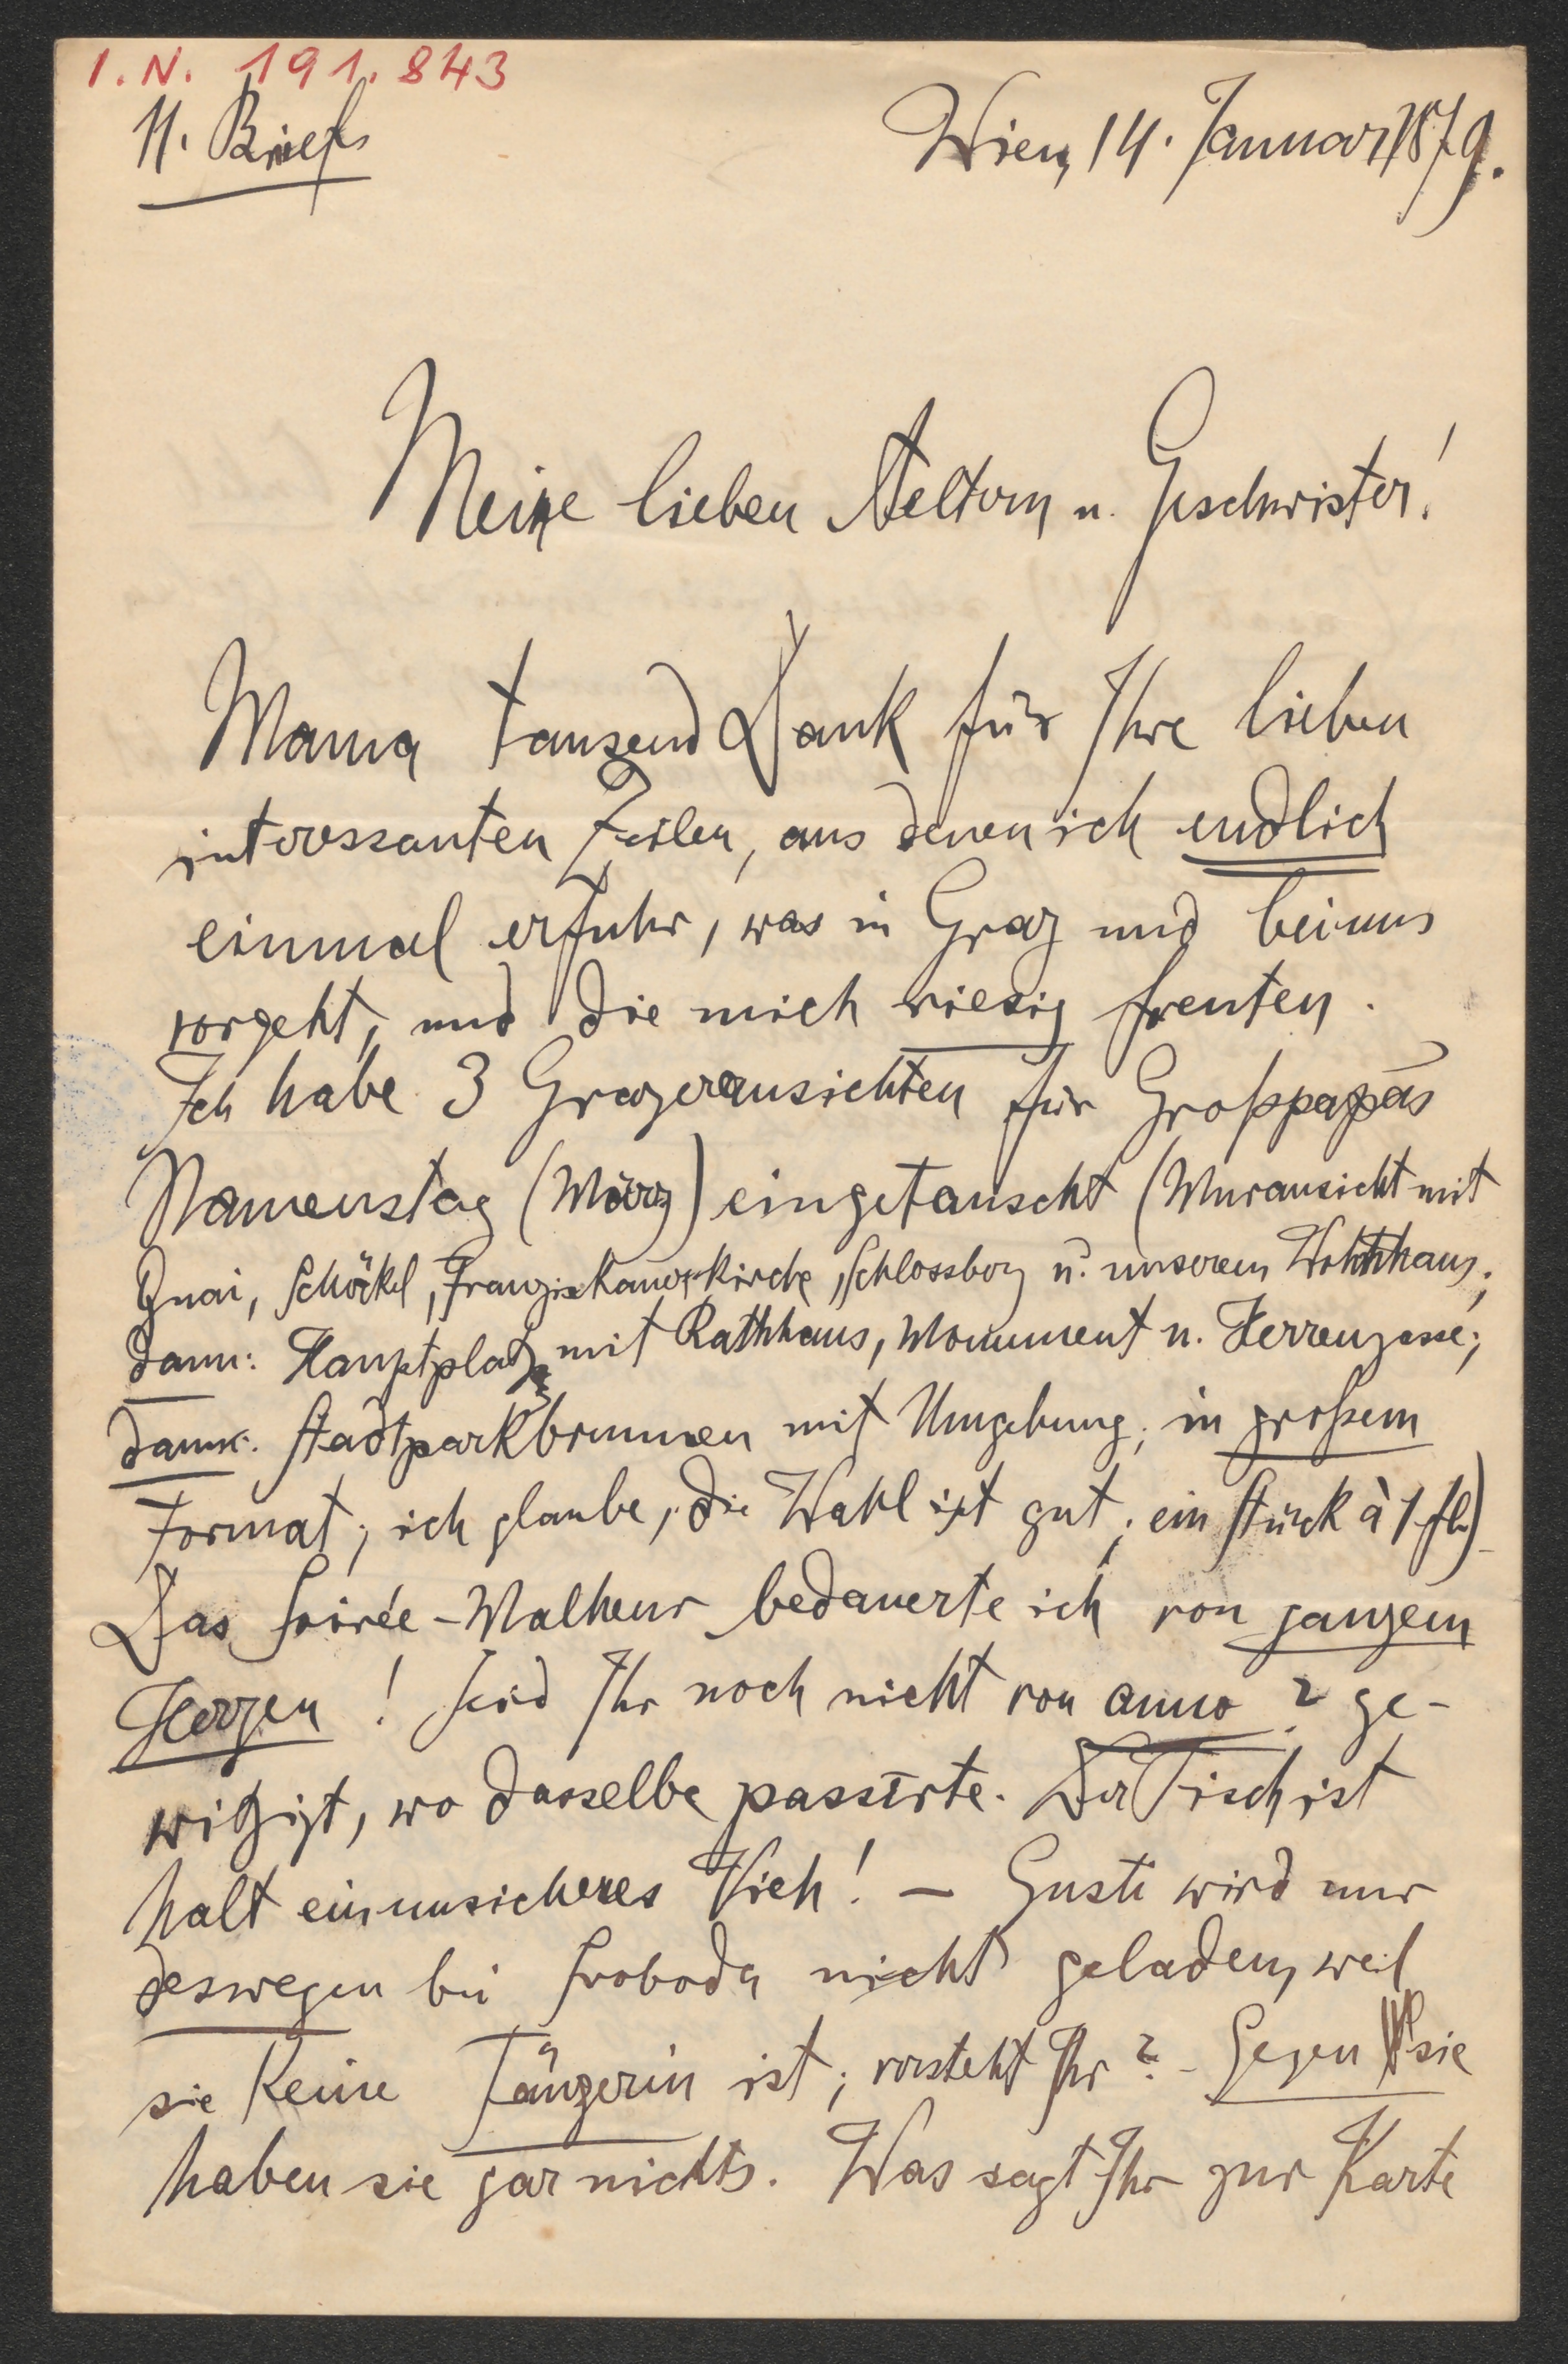 I.N. 191.843
11. Brief
Wien, 14. Januar 1879.
Meine lieben Aeltern u. Geschwister!
Mama tausend Dank für Ihre lieben
interessanten Zeilen, aus denen ich endlich
einmal erfuhr, was in Graz und bei uns
vorgeht, und die mich riesig freuten.
Ich habe 3 Grazeransichten für Großpapas
Namenstag (März) eingetauscht (Muransicht mit
Quai, Schöckel, Franziskanerkirche, Schlossberg u. unserem Wohnhaus;
dann: Hauptplatz mit Rathhaus, Monument u. Herrengasse;
dann: Stadtparkbrunnen mit Umgebung; in großem
Format; ich glaube, die Wahl ist gut; ein Stück à 1 fl.)
Das Soirée-Malheur bedauerte ich von ganzem
Herzen! Seid Ihr noch nicht von anno 2 ge-
witzigt, wo dasselbe passirte. Der Fisch ist
halt ein unsicheres Vieh! – Gusti wird nur
deswegen bei Svoboda nicht geladen, weil
sie keine Tänzerin ist; versteht Ihr? – Gegen sie
haben sie gar nichts. Was sagt Ihr zur Karte